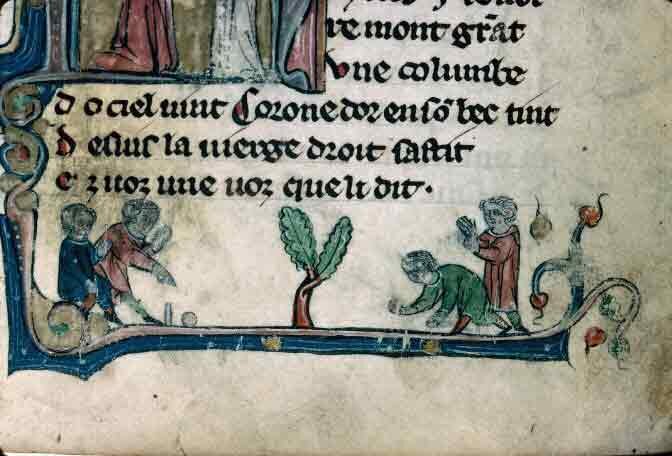 re mont grãt
vne columbe
d o ciel uint Corone dor en sõ bec tint
d esus la uierge droit sastit
e z uoz une uoz que li dit.